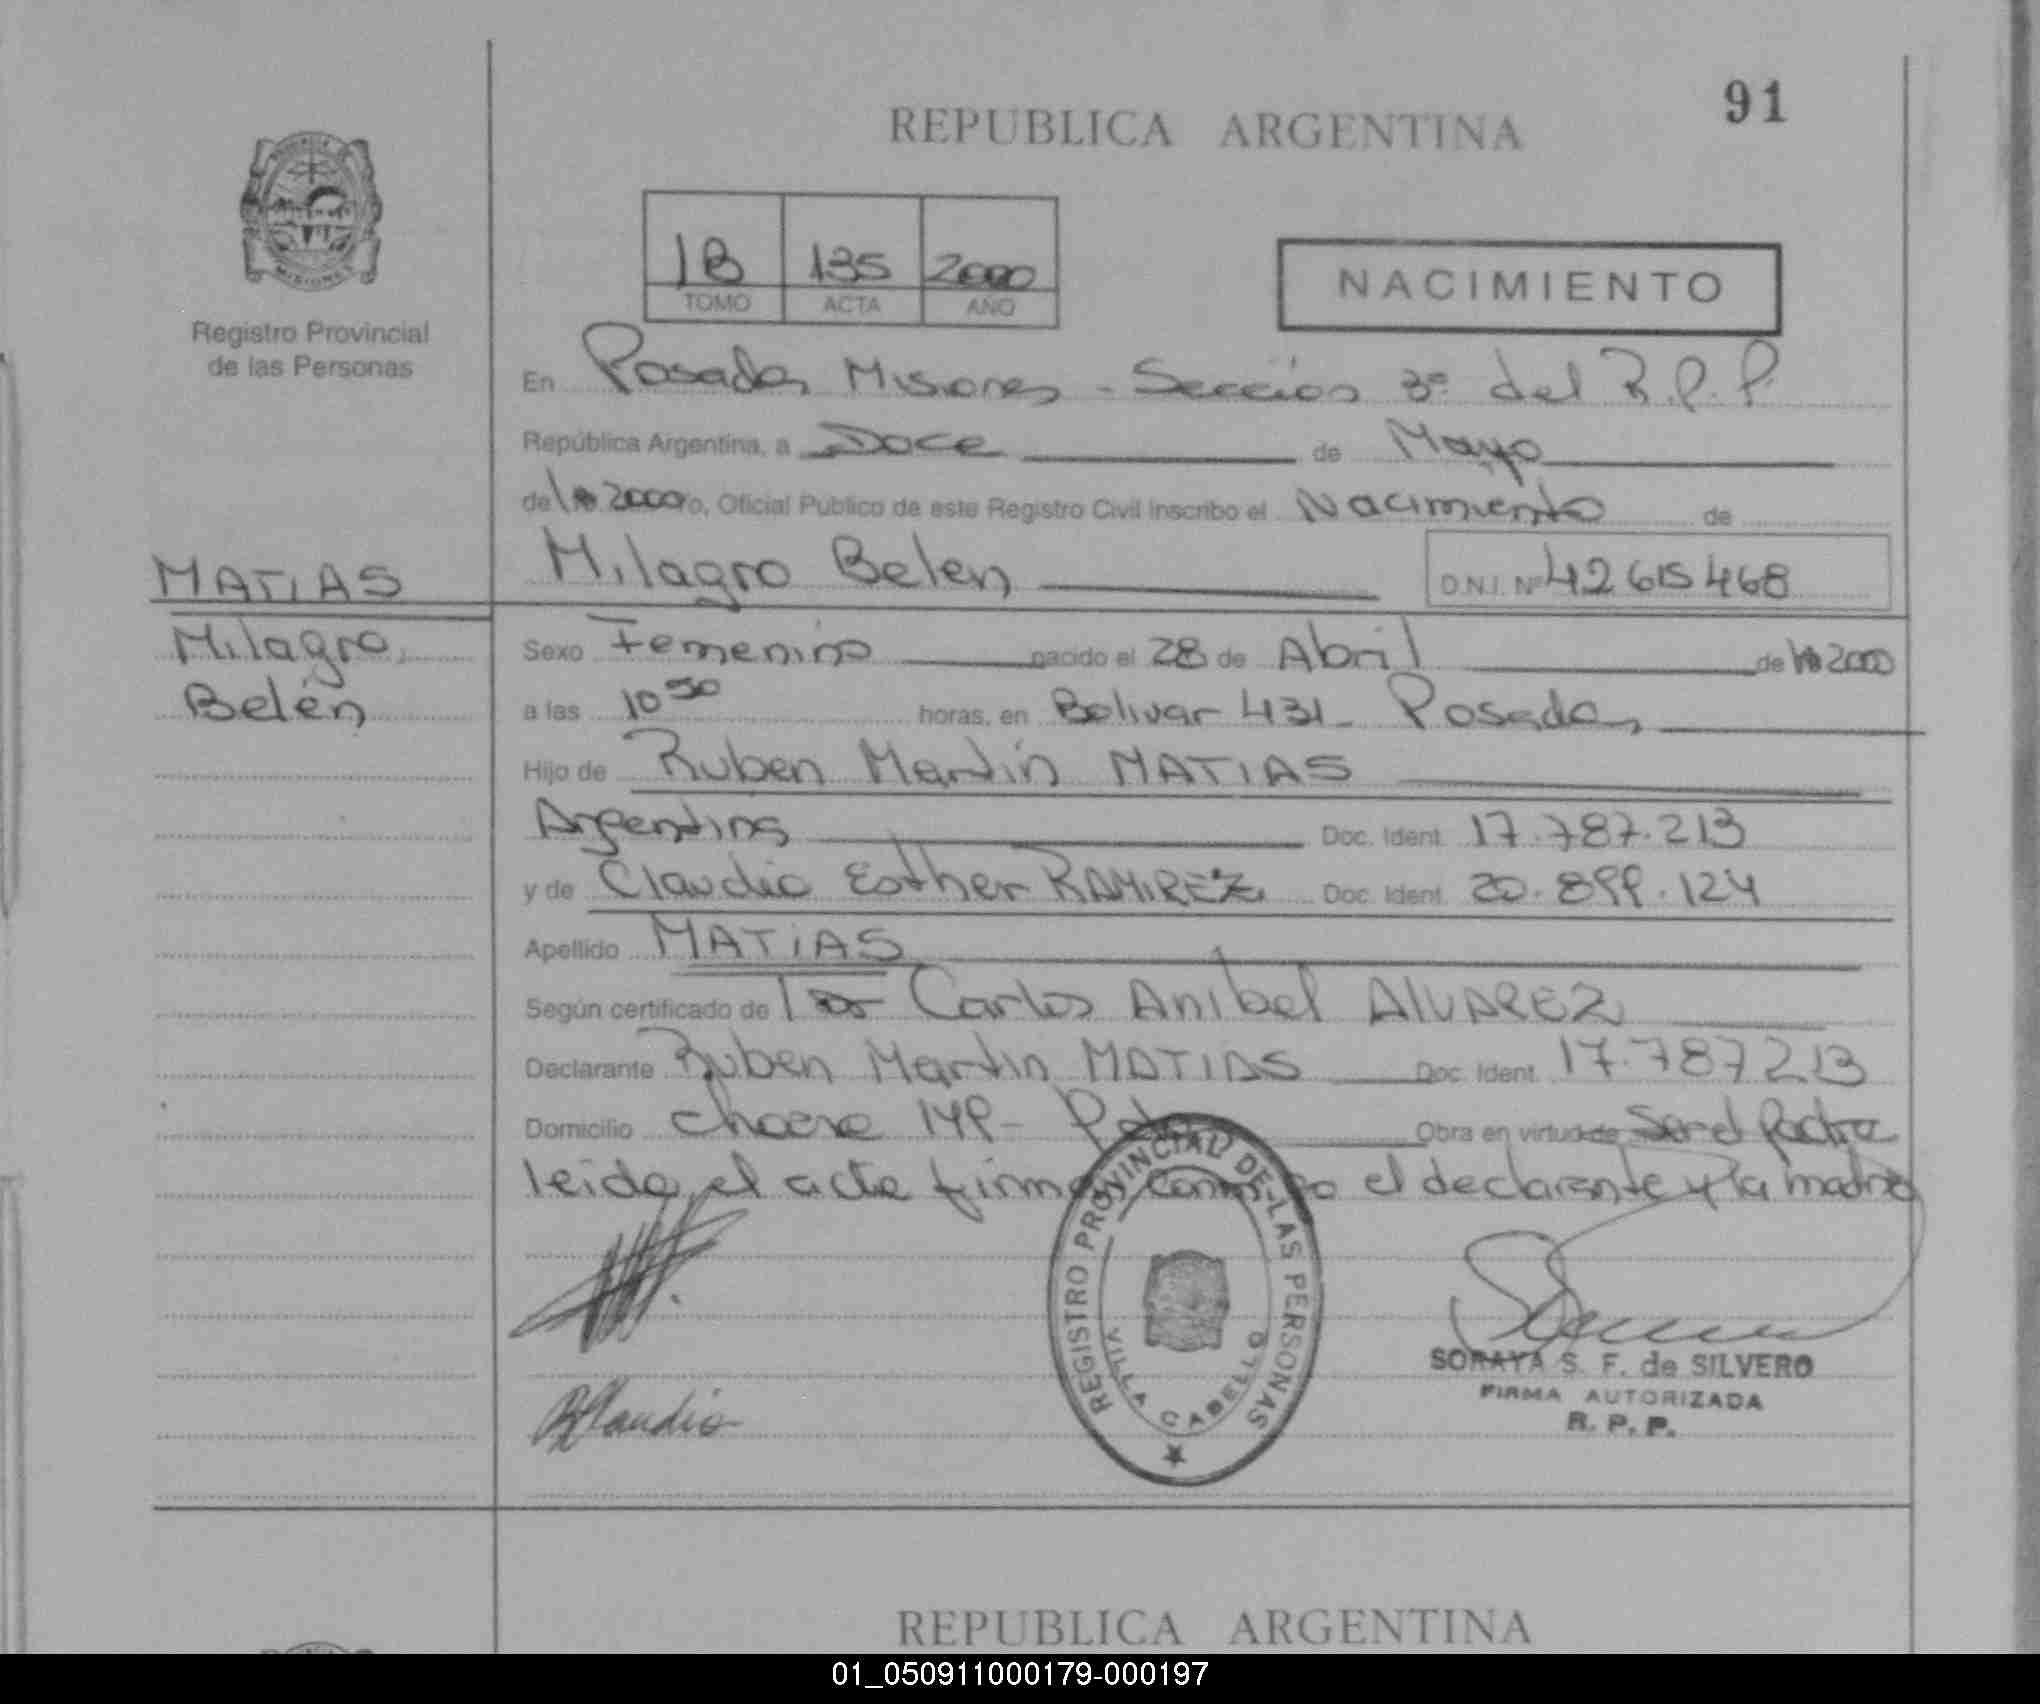 91
REPUBLICA ARGENTINA
1B 135 2000
TOMO ACTA AÑO
NACIMIENTO
MISIONES
Registro Provincial
de las Personas
En Posadas Misiones - Sección 3º del R.P.P.
República Argentina, a Doce de Mayo
de 2000 yo, Oficial Público de este Registro Civil inscribo el Nacimiento de
MATIAS
Milagro
Belén
Milagro Belen D.N.I. Nº 42615468
Sexo Femenino nacido el 28 de Abril de 2000
a las 10 50 horas, en Bolivar 431 - Posadas
Hijo de Ruben Martín MATIAS
Argentina Doc. Ident. 17.787.213
y de Claudia Esther RAMIREZ Doc. Ident. 20.899.124
Apellido MATIAS
Según certificado de Carlos Anibal ALVAREZ
Declarante Ruben Martin MATIAS Doc. Ident. 17.787213
Domicilio 149 - Obra en virtud de Ser el padre
leida el acta firma conmigo el declarante y la madre
REGISTRO PROVINCIAL DE LAS PERSONAS
VILLA CABELLO
Claudia
SORAYA S. F. de SILVERO
FIRMA AUTORIZADA
R. P. P.
REPUBLICA ARGENTINA
01_050911000179-000197